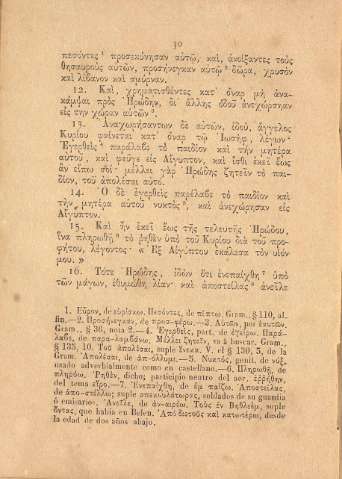 10
πεσόντες ¹ προσεκύνησαν αὐτῷ, καὶ, ἀνοίξαντες τοὺς
θησαυροὺς αὐτῶν, προσήνεγκαν αὐτῷ ² δῶρα, χρυσὸν
καὶ λίβανον καὶ σμύρναν.
12. Καὶ, χρηματισθέντες κατ' ὄναρ μὴ ἀνα-
κάμψαι πρὸς Ἡρώδην, δι ἄλλης ὁδοῦ ἀνεχώρησαν
εἰς τὴν χώραν αὐτῶν ³.
13. Ἀναχωρήσαντων δὲ αὐτῶν, ἰδοὺ, ἄγγελος
Κυρίου φαίνεται κατ' ὄναρ τῷ Ἰωσὴφ, λέγων·
Ἐγερθεὶς ⁴ παρέλαβε τὸ παιδίον καὶ τὴν μητέρα
αὐτοῦ, καὶ φεῦγε εἰς Αἴγυπτον, καὶ ἴσθι ἐκεῖ ἕως
ἂν εἴπω σοί· μέλλει γὰρ Ἡρώδης ζητεῖν τὸ παι-
δίον, τοῦ ἀπολέσαι αὐτό.
14. Ὁ δὲ ἐγερθεὶς παρέλαβε τὸ παιδίον καὶ
τὴν μητέρα αὐτοῦ νυκτὸς ⁵, καὶ ἀνεχώρησαν εἰς
Αἴγυπτον.
15. Καὶ ἦν ἐκεῖ ἕως τῆς τελευτῆς Ἡρώδου,
ἵνα πληρωθῇ ⁶ τὸ ῥηθὲν ὑπὸ τοῦ Κυρίου διὰ τοῦ προ-
φήτου, λέγοντος· « Ἐξ Αἰγύπτου ἐκάλεσα τὸν υἱόν
μου. »
16. Τότε Ἡρώδης, ἰδὼν ὅτι ἐνεπαίχθη ⁷ ὑπὸ
τῶν μάγων, ἐθυμώθη λίαν· καὶ ἀποστείλας ⁸ ἀνεῖλε
1. Εὗρον, de εὑρίσκω. Πεσόντες, de πίπτω. Gram. § 110, al
fin.—2. Προσήνεγκαν, de προσ-φέρω.—3. Αὑτῶν, por ἑαυτῶν.
Gram., § 36, nota 2.—4. Ἐγερθεὶς, part. de ἐγείρω. Παρέ-
λαβε, de παρα-λαμβάνω. Μέλλει ζητεῖν, va á buscar. Gram.
§ 135, 10. Τοῦ ἀπολέσαι, suple ἕνεκα. V. el § 130, 5, de la
Gram. Ἀπολέσαι, de ἀπ-όλλυμι.—5. Νυκτὸς, genit. de νὺξ,
usado adverbialmente como en castellano.—6. Πληρωθῇ, de
πληρόω. Ῥηθὲν, dicho; participio neutro del aor. ἐῤῥήθην,
del tema εἴρω.—7. Ἐνεπαίχθη, de ἐμ παίζω. Ἀποστείλας,
de ἀπο-στέλλω; suple σπεκουλάτωρας, soldados de su guardia
ó emisarios. Ἀνεῖλε, de ἀν-αιρέω. Τοὺς ἐν Βηθλεὲμ, suple
ὄντας, que habia en Belen. Ἀπὸ διετοῦς καὶ κατωτέρω, desde
la edad de dos años abajo.